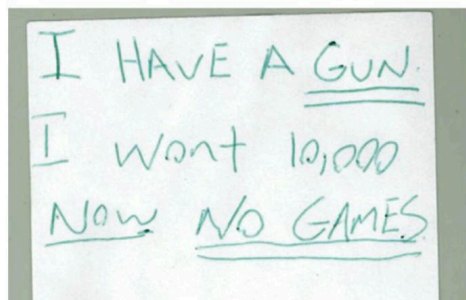 I HAVE A GUN.
I Want 10,000
NOW NO GAMES